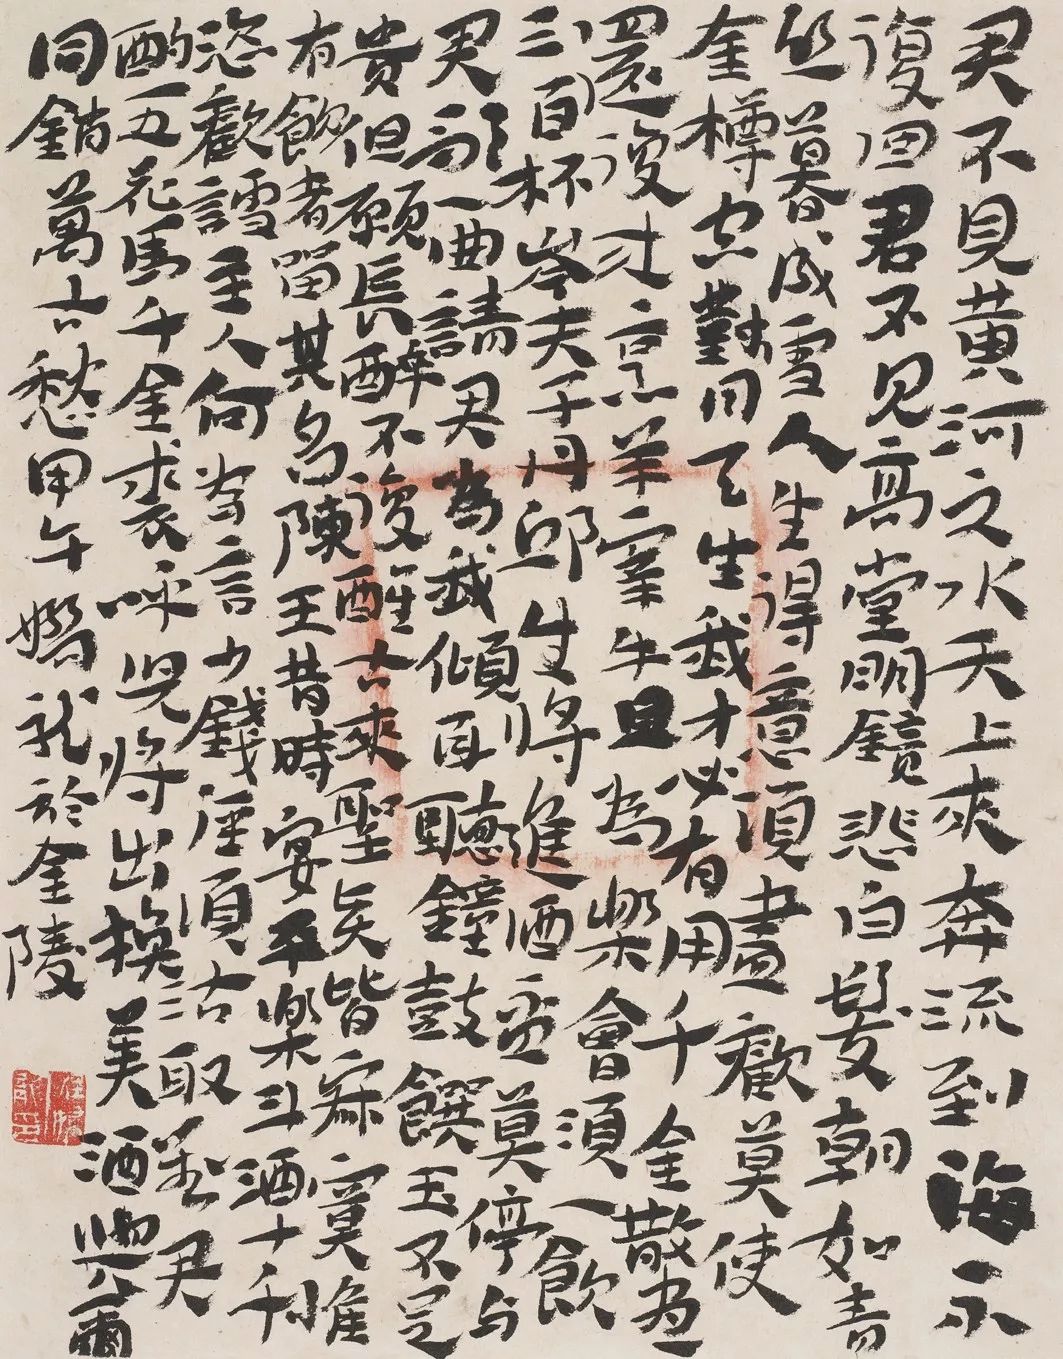 君不見黄河之水天上來奔流到海不
復回君不見高堂明鏡悲白髮朝如青
丝暮成雪人生得意須盡歡莫使
金樽空對月天生我才必有用千金散盡
還復來烹羊宰牛且為樂會須一飲
三百杯岑夫子丹邱生將進酒盃莫停与
君歌一曲請君為我傾耳聽鐘鼓饌玉不足
貴但願長醉不復醒古來聖賢皆寂寞惟
有飲者留其名陳王昔時宴平樂斗酒十千
恣歡謔主人何為言少錢徑須沽取對君
酌五花馬千金裘呼兒將出換美酒與爾
同銷萬古愁甲午龍於金陵